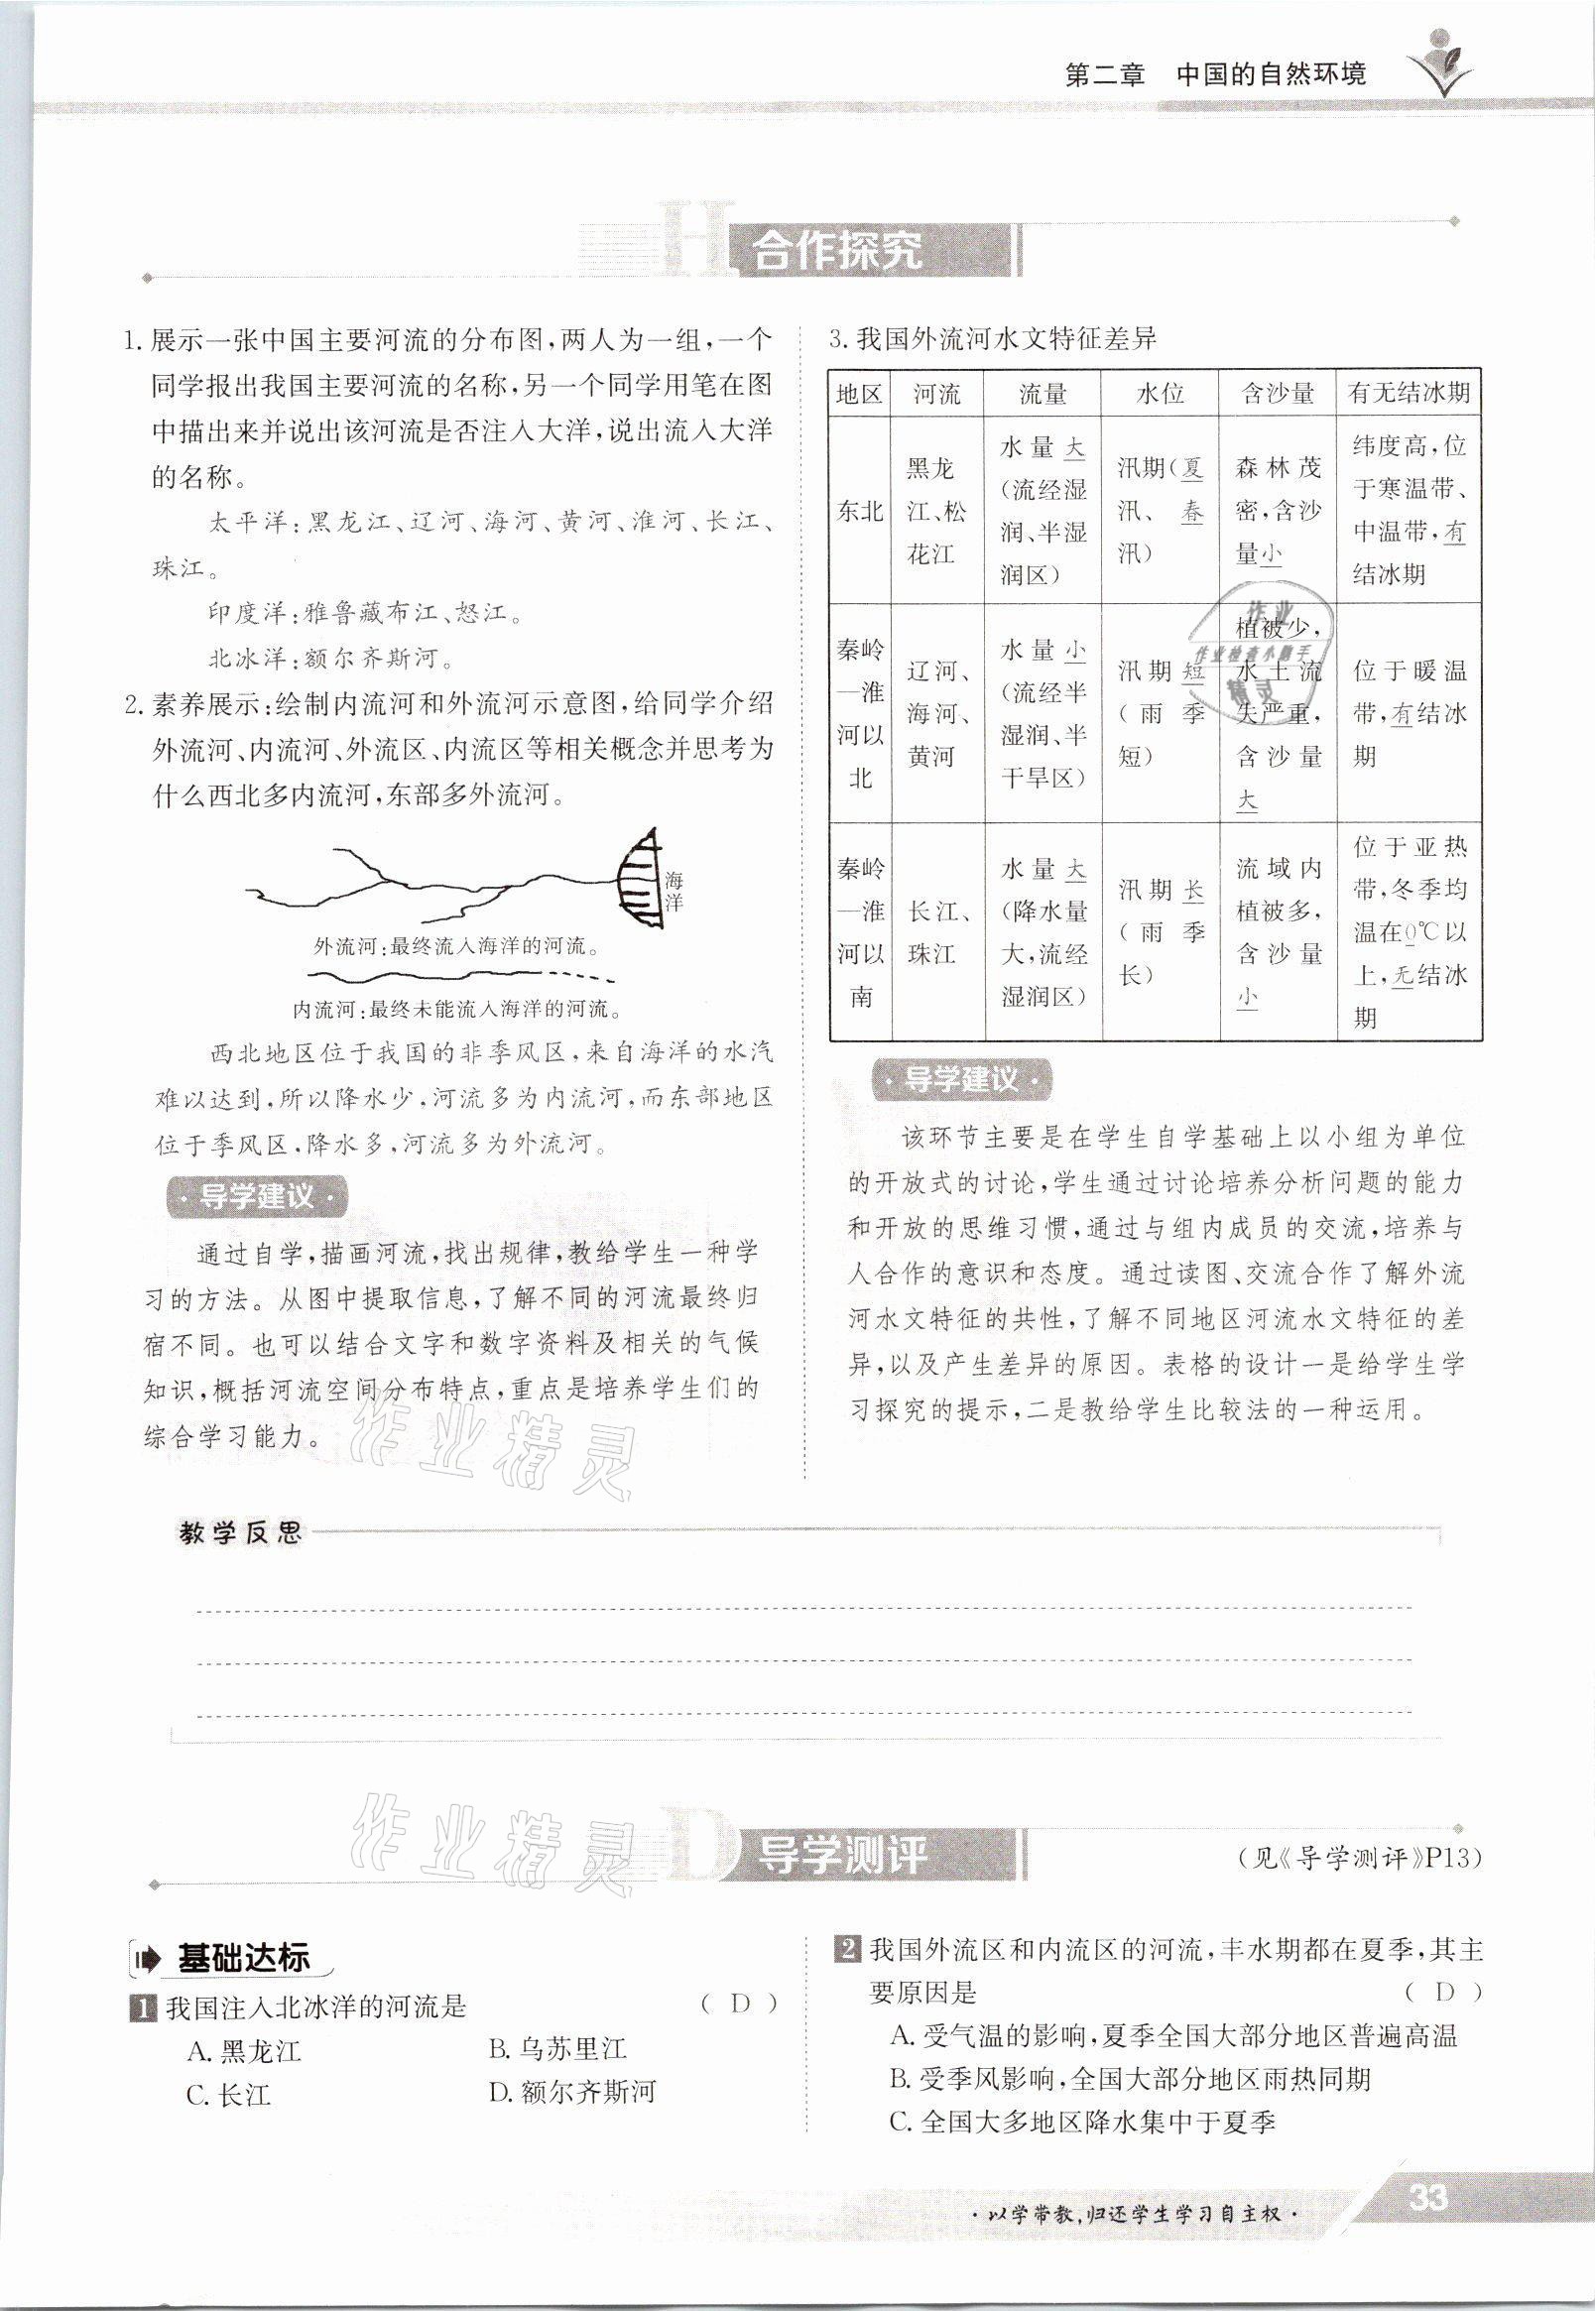 第二章 中国的自然环境
合作探究
1. 展示一张中国主要河流的分布图,两人为一组,一个
同学报出我国主要河流的名称,另一个同学用笔在图
中描出来并说出该河流是否注入大洋,说出流入大洋
的名称。
太平洋:黑龙江、辽河、海河、黄河、淮河、长江、
珠江。
印度洋:雅鲁藏布江、怒江。
北冰洋:额尔齐斯河。
2. 素养展示:绘制内流河和外流河示意图,给同学介绍
外流河、内流河、外流区、内流区等相关概念并思考为
什么西北多内流河,东部多外流河。
海
洋
外流河:最终流入海洋的河流。
内流河:最终未能流入海洋的河流。
西北地区位于我国的非季风区,来自海洋的水汽
难以达到,所以降水少,河流多为内流河,而东部地区
位于季风区,降水多,河流多为外流河。
· 导学建议 ·
通过自学,描画河流,找出规律,教给学生一种学
习的方法。从图中提取信息,了解不同的河流最终归
宿不同。也可以结合文字和数字资料及相关的气候
知识,概括河流空间分布特点,重点是培养学生们的
综合学习能力。
3. 我国外流河水文特征差异
地区 河流 流量 水位 含沙量 有无结冰期
东北
黑龙
江、松
花江
水量大
(流经湿
润、半湿
润区)
汛期(夏
汛、春
汛)
森林茂
密,含沙
量小
纬度高,位
于寒温带、
中温带,有
结冰期
秦岭
—淮
河以
北
辽河、
海河、
黄河
水量小
(流经半
湿润、半
干旱区)
汛期短
(雨季
短)
植被少,
水土流
失严重,
含沙量
大
位于暖温
带,有结冰
期
秦岭
—淮
河以
南
长江、
珠江
水量大
(降水量
大,流经
湿润区)
汛期长
(雨季
长)
流域内
植被多,
含沙量
小
位于亚热
带,冬季均
温在0℃以
上,无结冰
期
作业
作业检查小助手
精灵
· 导学建议 ·
该环节主要是在学生自学基础上以小组为单位
的开放式的讨论,学生通过讨论培养分析问题的能力
和开放的思维习惯,通过与组内成员的交流,培养与
人合作的意识和态度。通过读图、交流合作了解外流
河水文特征的共性,了解不同地区河流水文特征的差
异,以及产生差异的原因。表格的设计一是给学生学
习探究的提示,二是教给学生比较法的一种运用。
作业精灵
教学反思
作业精灵
D 导学测评
(见《导学测评》P13)
基础达标
1 我国注入北冰洋的河流是 ( D )
A. 黑龙江 B. 乌苏里江
C. 长江 D. 额尔齐斯河
2 我国外流区和内流区的河流,丰水期都在夏季,其主
要原因是 ( D )
A. 受气温的影响,夏季全国大部分地区普遍高温
B. 受季风影响,全国大部分地区雨热同期
C. 全国大多地区降水集中于夏季
· 以学带教,归还学生学习自主权 ·
33